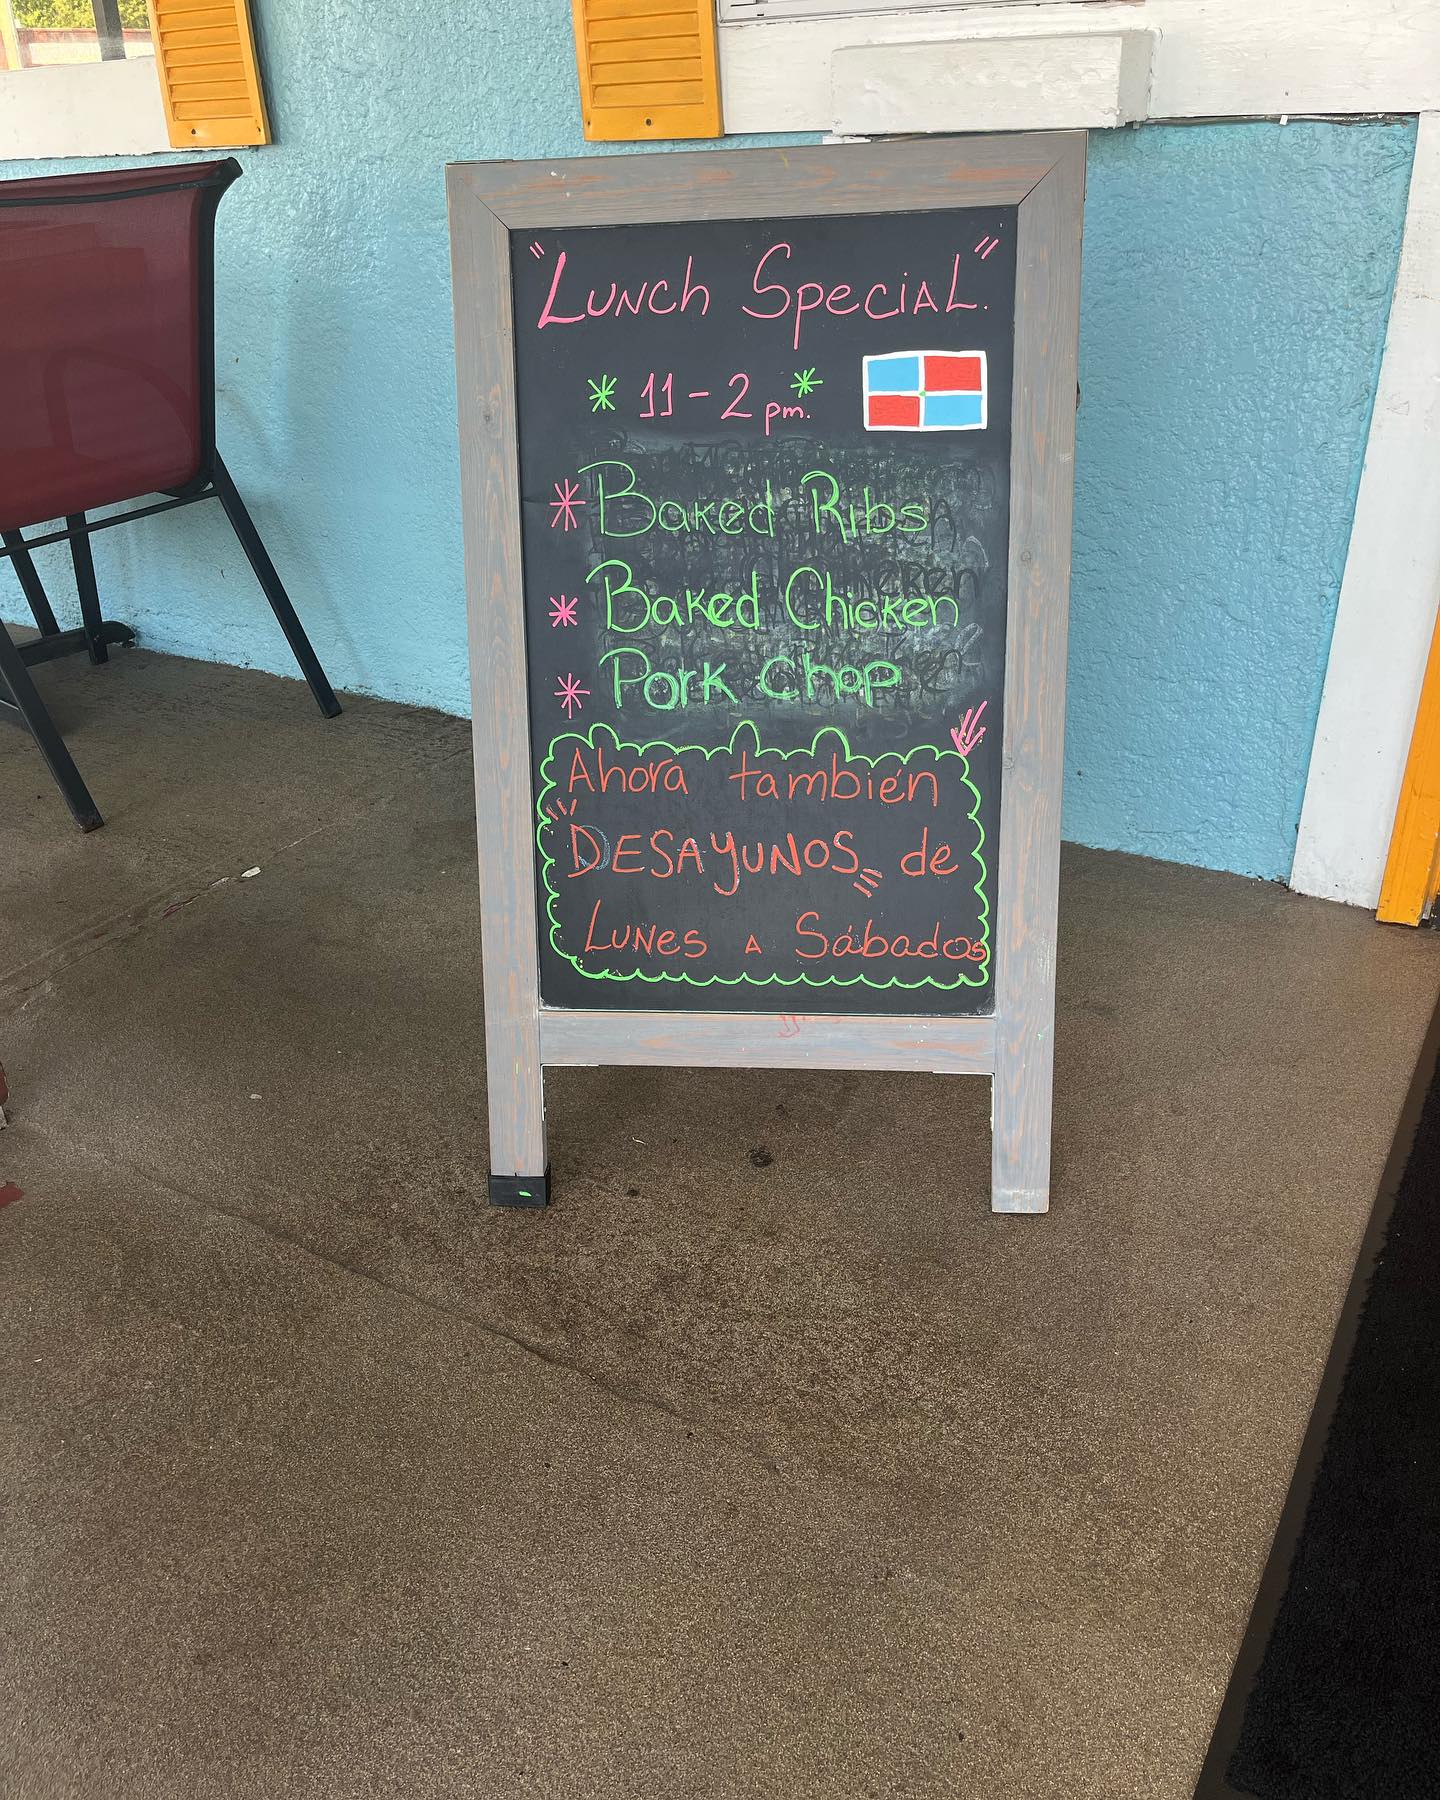 "Lunch Special".
* 11-2 pm. *
* Baked Ribs
* Baked Chicken
* Pork Chop
Ahora también
"DESAYUNOS" de
Lunes a Sábados